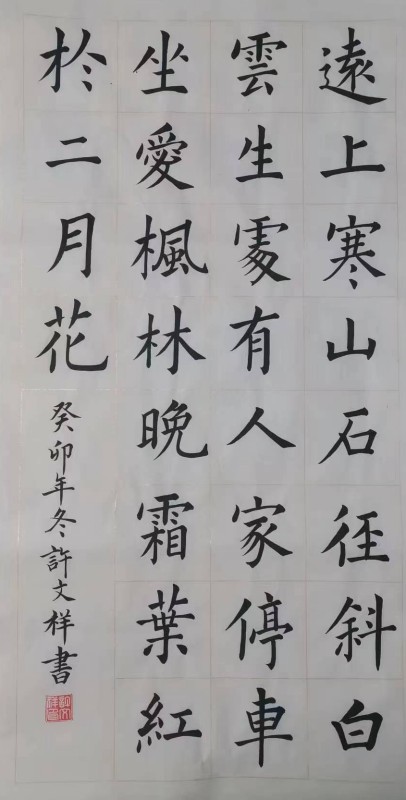 遠上寒山石径斜白
雲生處有人家停車
坐愛楓林晚霜葉紅
於二月花
癸卯年冬許文祥書